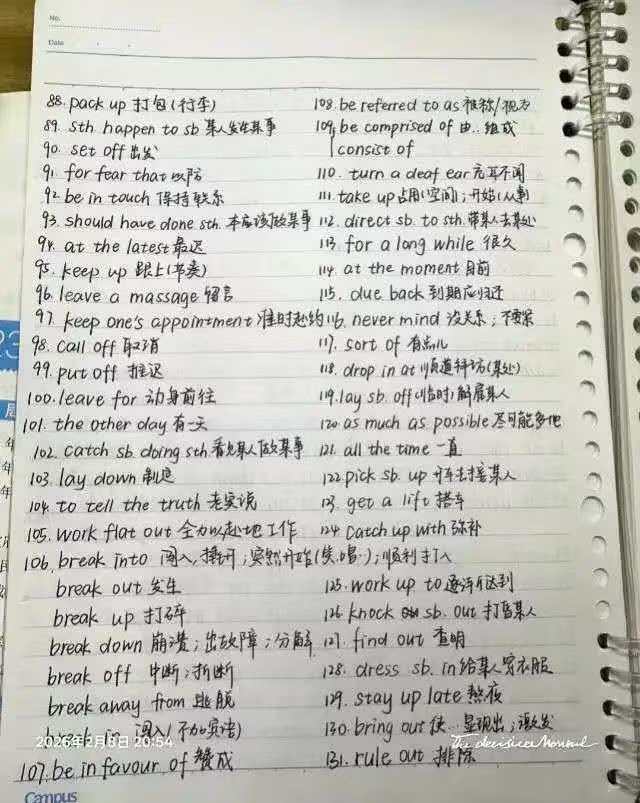 No.
Date
88. pack up 打包(行李)
89. sth happen to sb 某人发生某事
90. set off 出发
91. for fear that 以防
92. be in touch 保持联系
93. should have done sth. 本应该做某事
94. at the latest 最迟
95. keep up 跟上(节奏)
96. leave a massage 留言
97. keep one's appointment 准时赴约
98. call off 取消
99. put off 推迟
100. leave for 动身前往
101. the other day 有一天
102. catch sb. doing sth 看见某人做某事
103. lay down 制定
104. to tell the truth 老实说
105. work flat out 全力以赴地工作
106. break into 闯入,撬开;突然开始(笑.唱..);顺利打入
break out 发生
break up 打碎
break down 崩溃;出故障;分解
break off 中断;折断
break away from 逃脱
break in 闯入(不加宾语)
107. be in favour of 赞成
108. be referred to as 被称/视为
109. be comprised of 由..组成
consist of
110. turn a deaf ear 充耳不闻
111. take up 占用(空间);开始(从事)
112. direct sb. to sth. 带某人去某处
113. for a long while 很久
114. at the moment 目前
115. due back 到期应归还
116. never mind 没关系;不要紧
117. sort of 有点儿
118. drop in at 顺道拜访(某处)
119. lay sb. off (临时)解雇某人
120. as much as possible 尽可能多地
121. all the time 一直
122. pick sb. up 开车去接某人
123. get a lift 搭车
124. catch up with 弥补
125. work up to 逐渐达到
126. knock sb. out 打昏某人
127. find out 查明
128. dress sb. in 给某人穿衣服
129. stay up late 熬夜
130. bring out 使..显现出;激发
131. rule out 排除
2026年2月8日 20:54
The decisive Moment
Campus